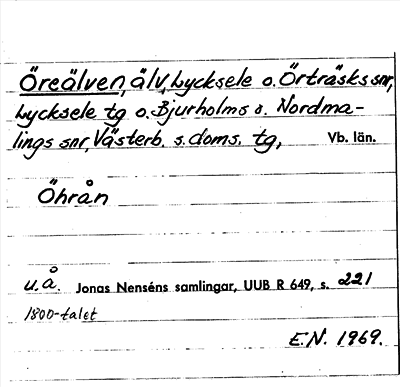 Öreälven, älv, Lycksele o. Örträsks snr,
Lycksele tg o. Bjurholms o. Nordma-
lings snr, Västerb. s. doms. tg, Vb. län.
Öhrån
u.å. Jonas Nenséns samlingar, UUB R 649, s. 221
1800-talet
E.N. 1969.